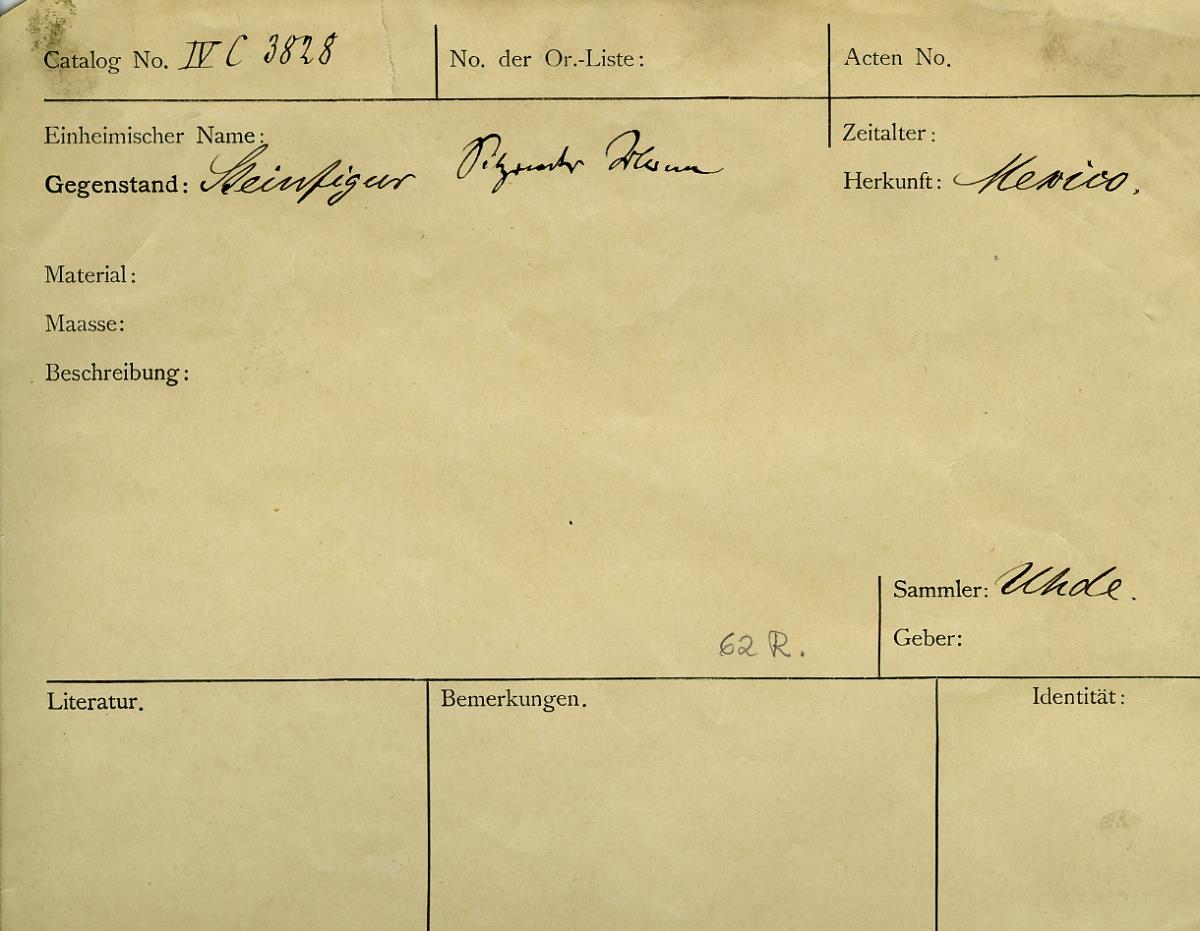 Catalog No. IV C 3828
No. der Or.-Liste:
Acten No.
Einheimischer Name:
Zeitalter:
Gegenstand: Steinfigur Sitzender Mann
Herkunft: Mexico.
Material:
Maasse:
Beschreibung:
Sammler: Uhde.
62 R.
Geber:
Literatur.
Bemerkungen.
Identität: